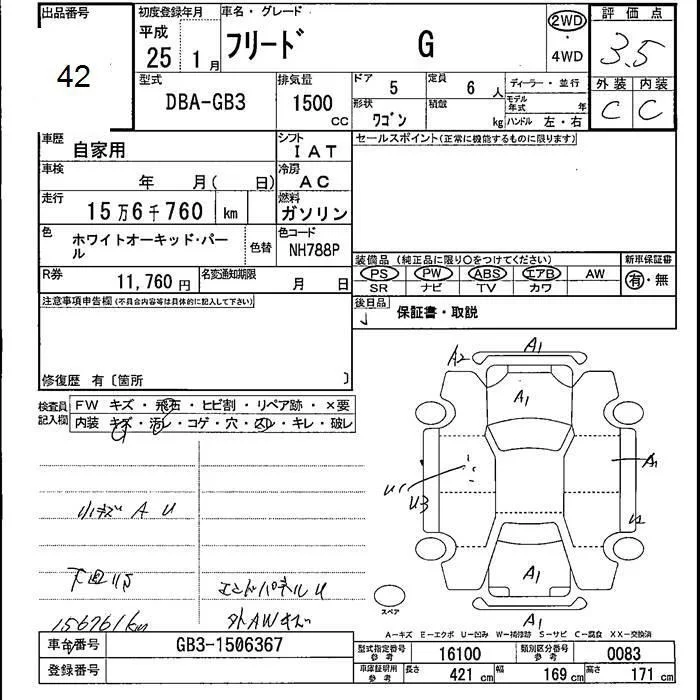 出品番号
42
初度登録年月
平成
25 1月
車名・グレード
フリード G
2WD
・
4WD
評価点
3.5
外装 内装
C C
型式
DBA-GB3
排気量
1500
CC
ドア
5
定員
6人
ディーラー・並行
形状
ワゴン
積載
kg
モデル年式
年
ハンドル 左・右
車歴
自家用
シフト
IAT
車検
年 月( 日)
冷房
AC
走行
15万6千760 km
燃料
ガソリン
色
ホワイトオーキッド・パール
色替
色コード
NH788P
R券
11,760円
名変通知期限
月 日
セールスポイント(正常に機能するものに限ります)
装備品(純正品に限り○をつけてください)
PS PW ABS エアB AW
SR ナビ TV カワ
新車保証書
有・無
後日品
保証書・取説
注意事項申告欄(不具合内容等は具体的に記入して下さい)
修復歴 有〔箇所 〕
検査員
記入欄
FW キズ・飛石・ヒビ割・リペア跡・×要
内装 キズ・汚レ・コゲ・穴・スレ・キレ・破レ
小キズ A U
下回りS
156761km
エンドパネルU
外AWキズ
A2 A1
A1
U1
U3
A1
A1
A1
スペア
A－キズ E－エクボ U－凹み W－補修跡 S－サビ C－腐食 XX－交換済
車台番号
GB3-1506367
登録番号
型式指定番号
参考
16100
類別区分番号
参考
0083
車庫証明用
参考
長さ
421 cm
幅
169 cm
高さ
171 cm